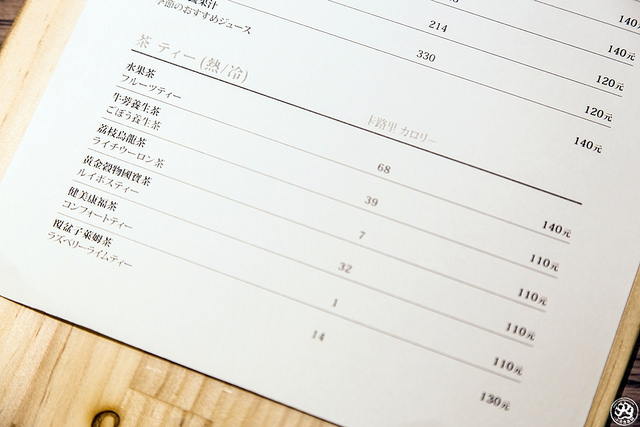 果汁
季節のおすすめジュース
214
330
140
140元
120元
120元
140元
茶 ティー (熱/冷)
卡路里 カロリー
水果茶
フルーツティー
68
140元
牛蒡養生茶
ごぼう養生茶
39
110元
荔枝烏龍茶
ライチウーロン茶
7
110元
黃金穀物國寶茶
ルイボスティー
32
110元
健美康福茶
コンフォートティー
1
110元
覆盆子萊姆茶
ラズベリーライムティー
14
130元